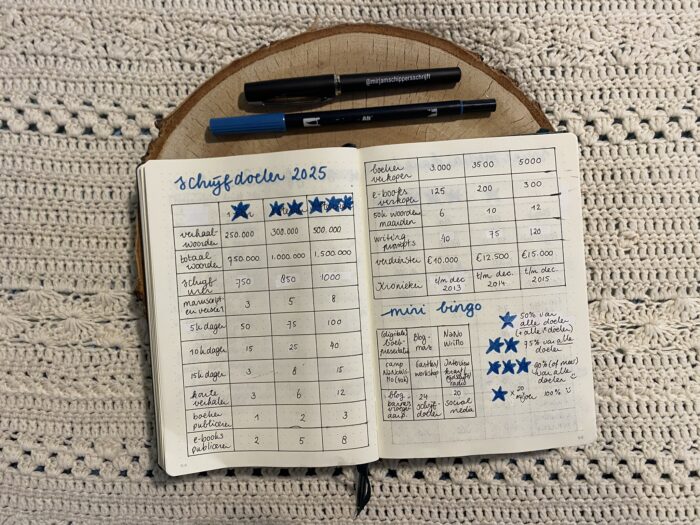 @mirjamschippersschrijft
schrijfdoelen 2025
verhaal-
woorden 250.000 300.000 500.000
totaal
woorden 750.000 1.000.000 1,500,000
schrijf
uren 750 850 1000
manuscript-
en versies 3 5 8
5k dagen 50 75 100
10k dagen 15 25 40
15k dagen 3 8 15
korte
verhalen 3 6 12
boeken
publiceren 1 2 3
e-books
publiceren 2 5 8
boeken
verkopen 3.000 3500 5000
e-books
verkopen 125 200 300
50k woorden
maanden 6 10 12
writing
prompts 40 75 120
verdiensten €10.000 €12.500 €15.000
Kronieken t/m dec. 2013 t/m dec. 2014 t/m dec. 2015
mini bingo
(digitale)
boek-
presentatie
Blog-
NaNo
WriMo
camp
workshop
Interview
krant/
radio
blog-
24
schrijf-
doelen
20
social
media
50% van
alle doelen
75% van alle
doelen
90% (of meer)
van alle
doelen
x 20
100%